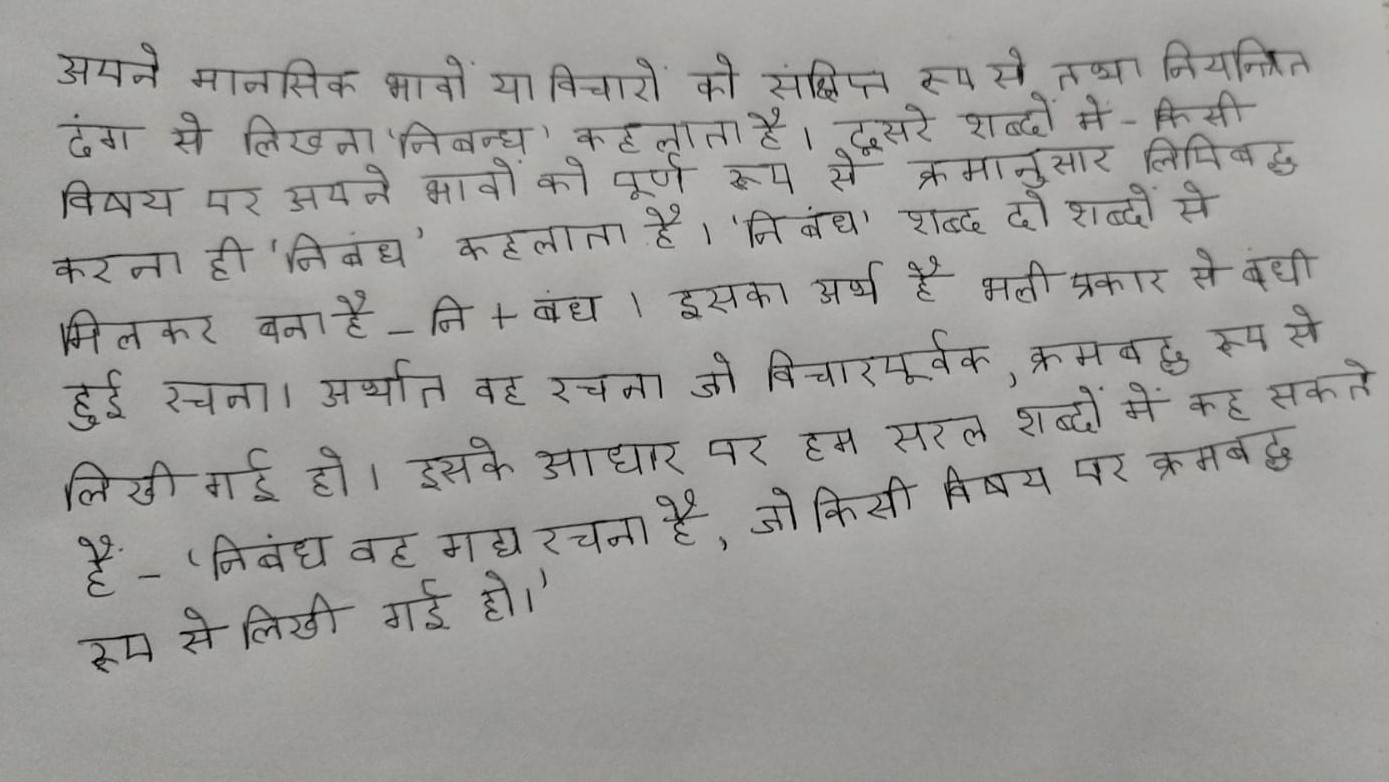 अपने मानसिक भावों या विचारों को संक्षिप्त रूप से तथा नियन्त्रित
ढंग से लिखना 'निबन्ध' कहलाता है। दूसरे शब्दों में - किसी
विषय पर अपने भावों को पूर्ण रूप से क्रमानुसार लिपिबद्ध
करना ही 'निबंध' कहलाता है। 'निबंध' शब्द दो शब्दों से
मिलकर बना है - नि + बंध । इसका अर्थ है भली प्रकार से बंधी
हुई रचना। अर्थात वह रचना जो विचारपूर्वक, क्रमबद्ध रूप से
लिखी गई हो। इसके आधार पर हम सरल शब्दों में कह सकते
हैं - 'निबंध वह गद्य रचना है, जो किसी विषय पर क्रमबद्ध
रूप से लिखी गई हो।'